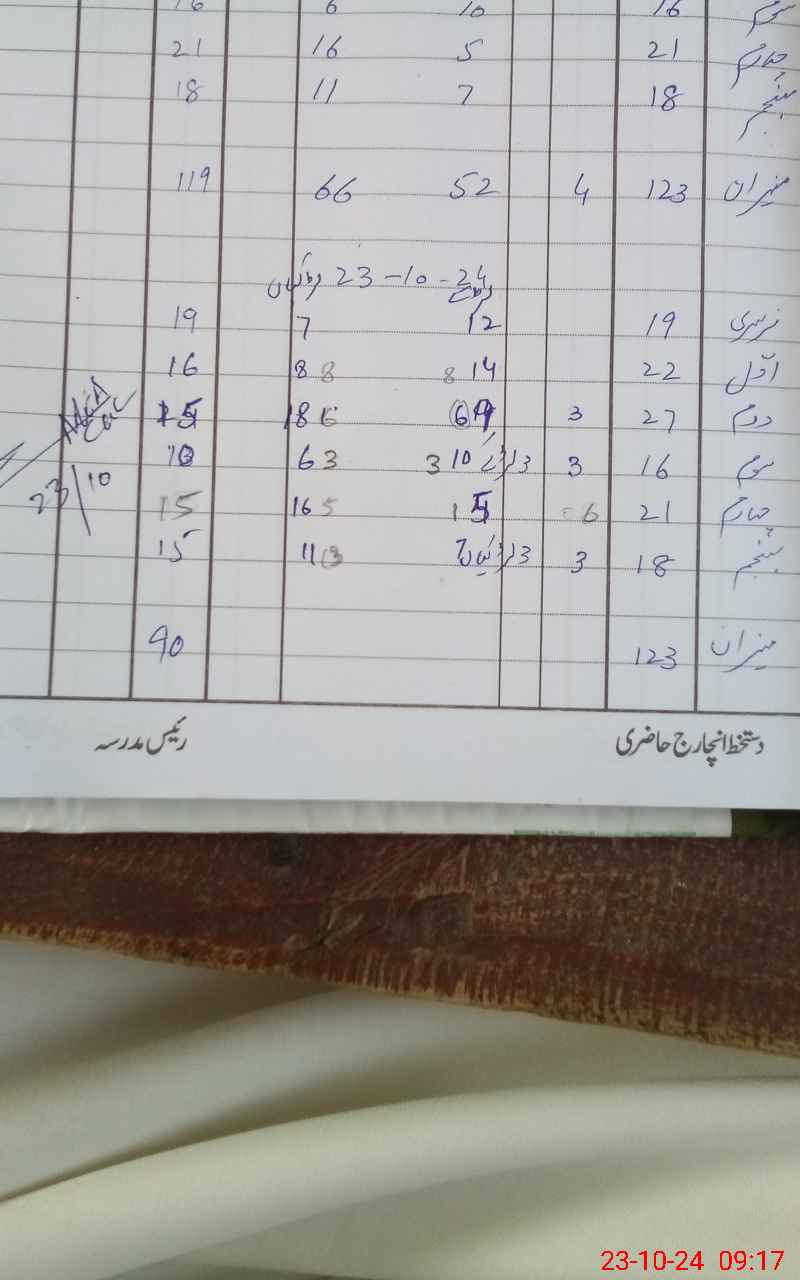 سوم 16 10 6 16
چہارم 21 5 16 21
پنجم 18 7 11 18
میزان 123 4 52 66 119
23-10-24
نرسری 19 12 7 19
اوّل 22 14 8 8 8 16
دوم 27 3 6 18 6 15
سوم 16 3 10 3 6 3 10
چہارم 21 6 15 16 5 15
پنجم 18 3 7 11 3 15
23/10
میزان 123 90
دستخط انچارج حاضری رئیس مدرسہ
23-10-24 09:17